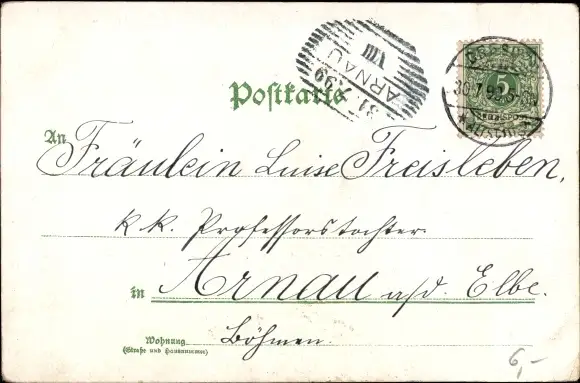 ARNAU
VIII
31.
99
DRESDEN
30.7.99
5
Postkarte
An
Fräulein Luise Freisleben,
k.k. Professorstochter.
in Arnau a/d. Elbe.
Wohnung
(Straße und Hausnummer)
Böhmen.
6,-